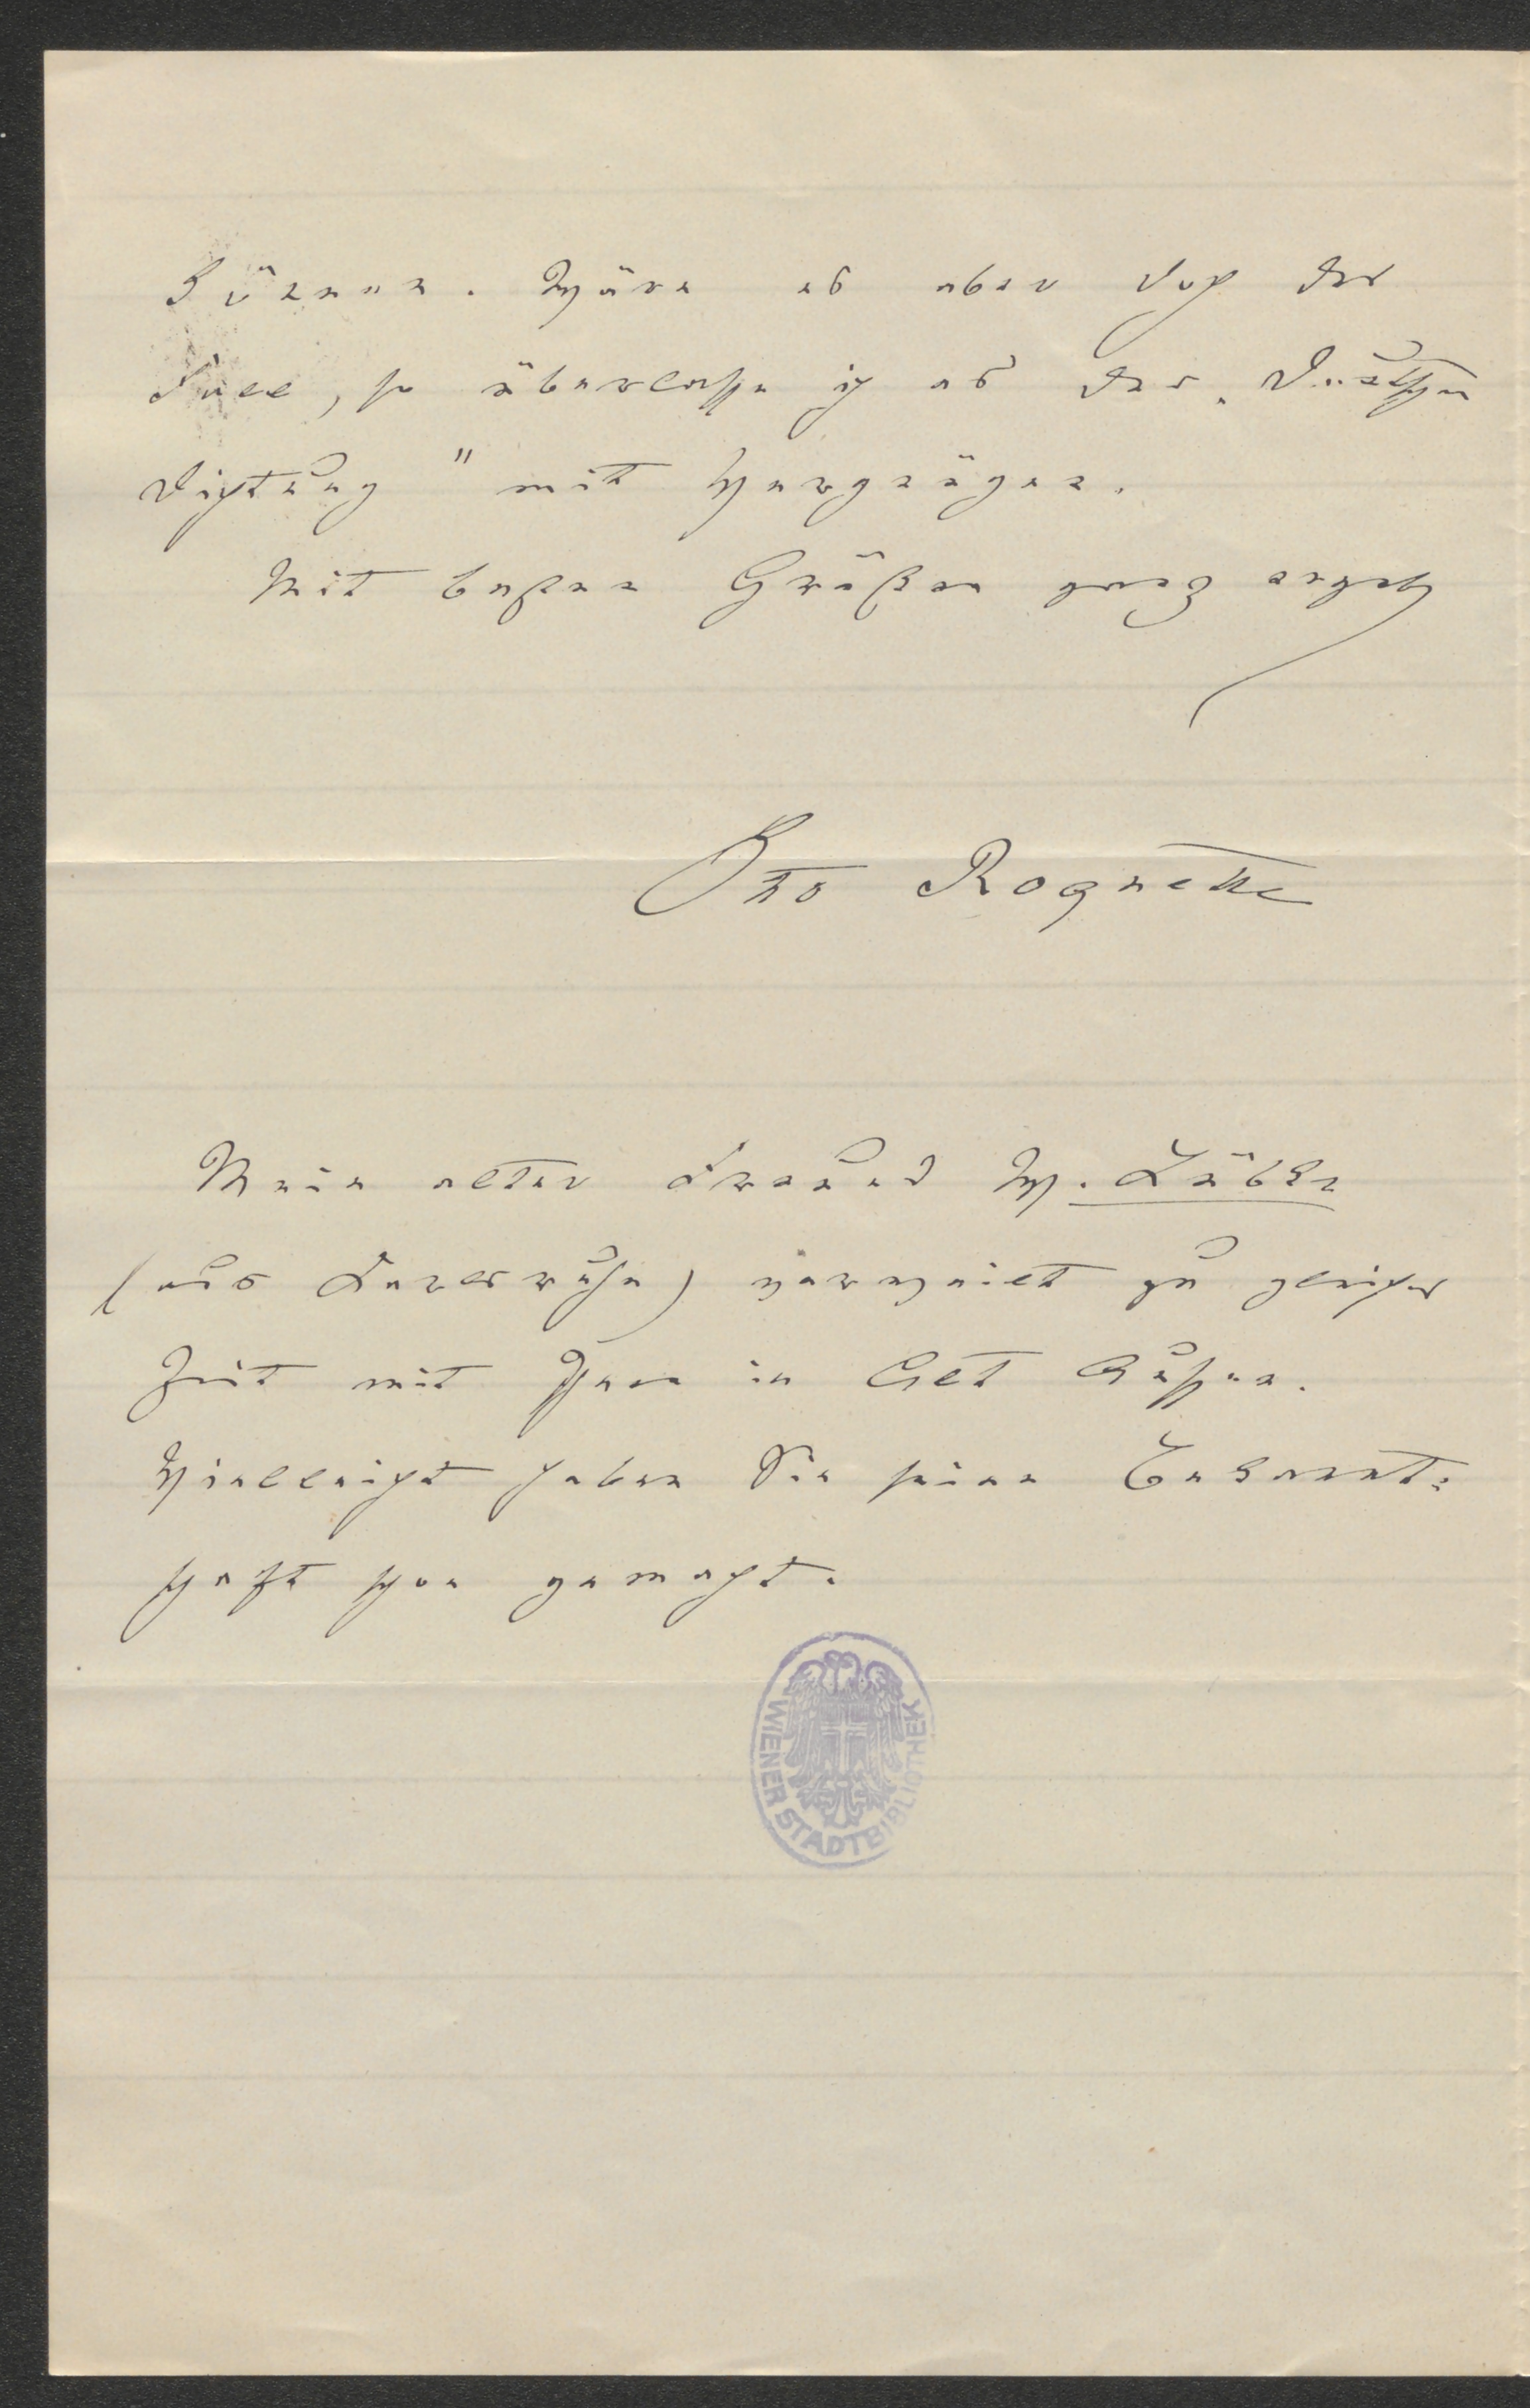 können. Wäre es aber doch der
Fall, so überlasse ich es der „Deutschen
Dichtung" mit Vergnügen.
Mit besten Grüßen ganz ergeb
Otto Roquette
Mein alter Freund W. Lübke
(aus Karlsruhe) verweilt zu gleicher
Zeit mit Ihnen in Alt Aussee.
Vielleicht haben Sie seine Bekannt-
schaft schon gemacht.
WIENER STADTBIBLIOTHEK